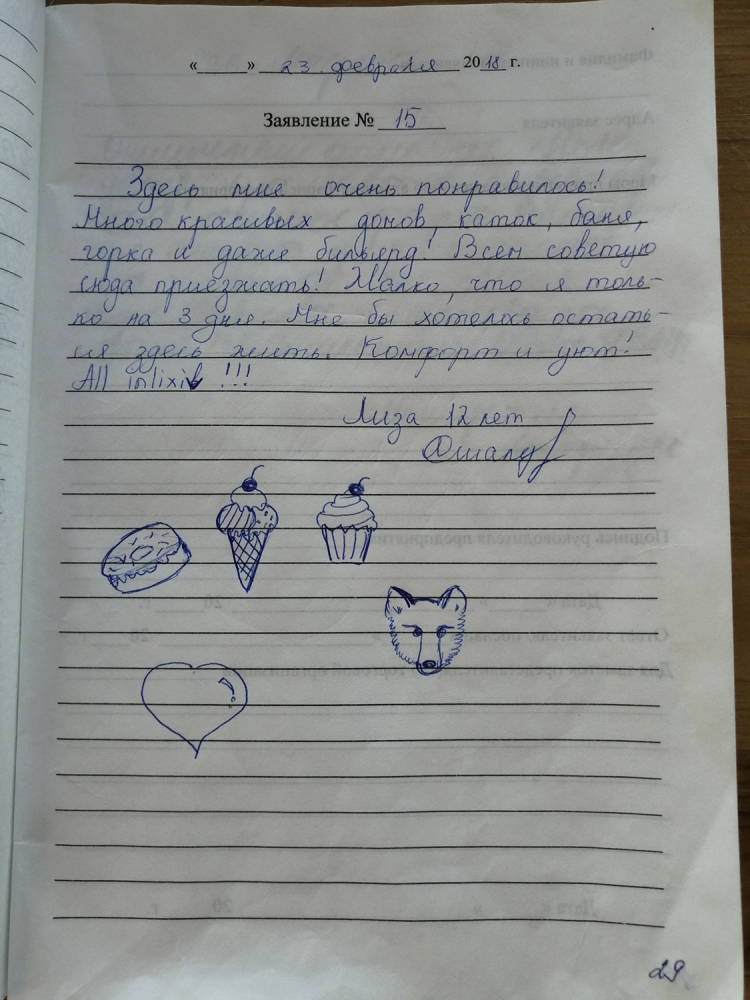 « » 23 февраля 2018 г.
Заявление № 15
Здесь мне очень понравилось!
Много красивых домов, каток, баня,
горка и даже бильярд! Всем советую
сюда приезжать! Жалко, что я толь-
ко на 3 дня. Мне бы хотелось остать-
ся здесь жить. Комфорт и уют!
All !!!
Лиза 12 лет
29